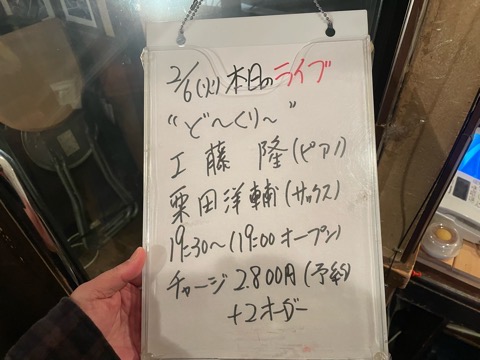 2/6(火)本日のライブ
"ど〜くり〜"
工藤 隆(ピアノ)
栗田洋輔(サックス)
19:30〜(19:00オープン)
チャージ2.800円(予約)
+2オーダー